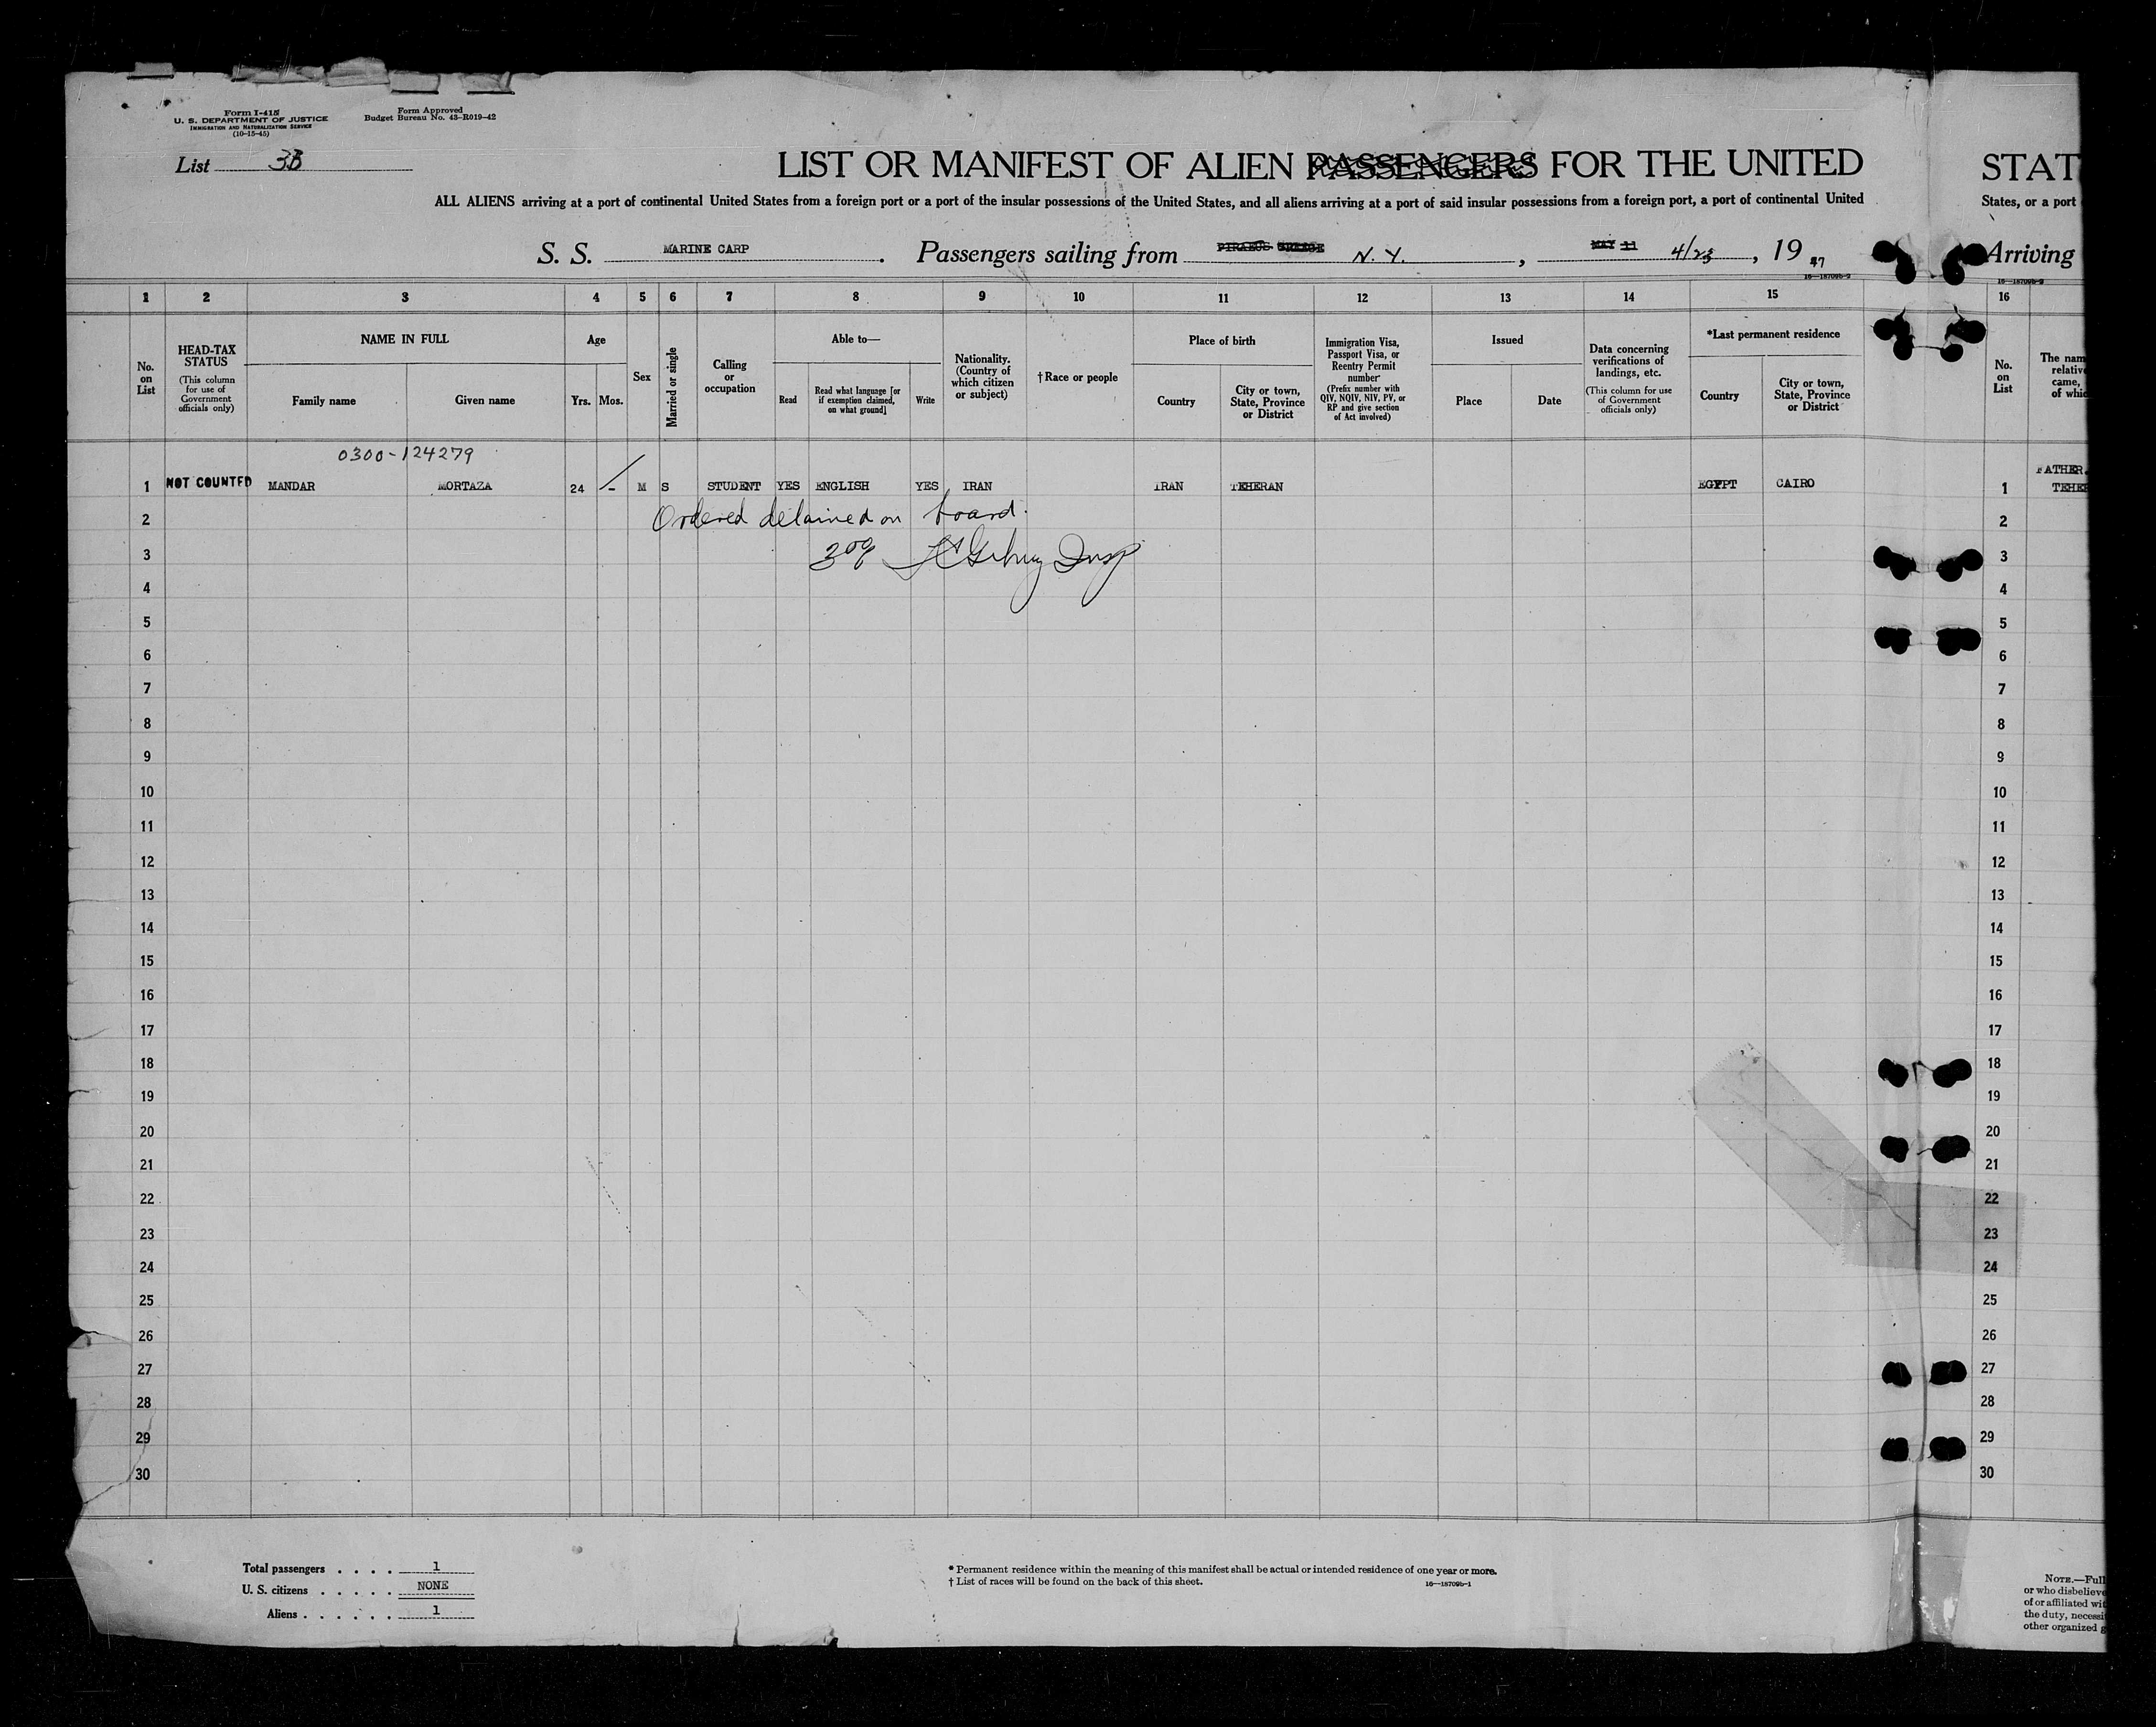 Form I-415
U. S. DEPARTMENT OF JUSTICE
IMMIGRATION AND NATURALIZATION SERVICE
(10-15-45)
Form Approved
Budget Bureau No. 43-R019-42
List 3B
LIST OR MANIFEST OF ALIEN PASSENGERS FOR THE UNITED
STAT
ALL ALIENS arriving at a port of continental United States from a foreign port or a port of the insular possessions of the United States, and all aliens arriving at a port of said insular possessions from a foreign port, a port of continental United
States, or a port
S. S. MARINE CARP. Passengers sailing from PIRAEUS GREECE N. Y., MAY 11 4/23, 19 47
Arriving
16—18709b-2
16—18709b-2
1 2 3 4 5 6 7 8 9 10 11 12 13 14 15 16
No. on List
HEAD-TAX STATUS
(This column for use of Government officials only)
NAME IN FULL
Family name
Given name
Age
Yrs. Mos.
Sex
Married or single
Calling or occupation
Able to—
Read
Read what language [or if exemption claimed, on what ground]
Write
Nationality. (Country of which citizen or subject)
†Race or people
Place of birth
Country
City or town, State, Province or District
Immigration Visa, Passport Visa, or Reentry Permit number
(Prefix number with QIV, NQIV, NIV, PV, or RP and give section of Act involved)
Issued
Place
Date
Data concerning verifications of landings, etc.
(This column for use of Government officials only)
*Last permanent residence
Country
City or town, State, Province or District
No. on List
The nam
relativ
came,
of whic
0300-124279
FATHER
1 NOT COUNTED MANDAR MORTAZA 24 - M S STUDENT YES ENGLISH YES IRAN IRAN TEHERAN EGYPT CAIRO 1 TEHE
2 Ordered detained on board. 2
3 3
4 4
5 5
6 6
7 7
8 8
9 9
10 10
11 11
12 12
13 13
14 14
15 15
16 16
17 17
18 18
19 19
20 20
21 21
22 22
23 23
24 24
25 25
26 26
27 27
28 28
29 29
30 30
Total passengers . . . . 1
U. S. citizens . . . . . NONE
Aliens . . . . . . 1
* Permanent residence within the meaning of this manifest shall be actual or intended residence of one year or more.
† List of races will be found on the back of this sheet.
16—18709b-1
NOTE.—Full
or who disbelieve
of or affiliated wit
the duty, necessi
other organized g